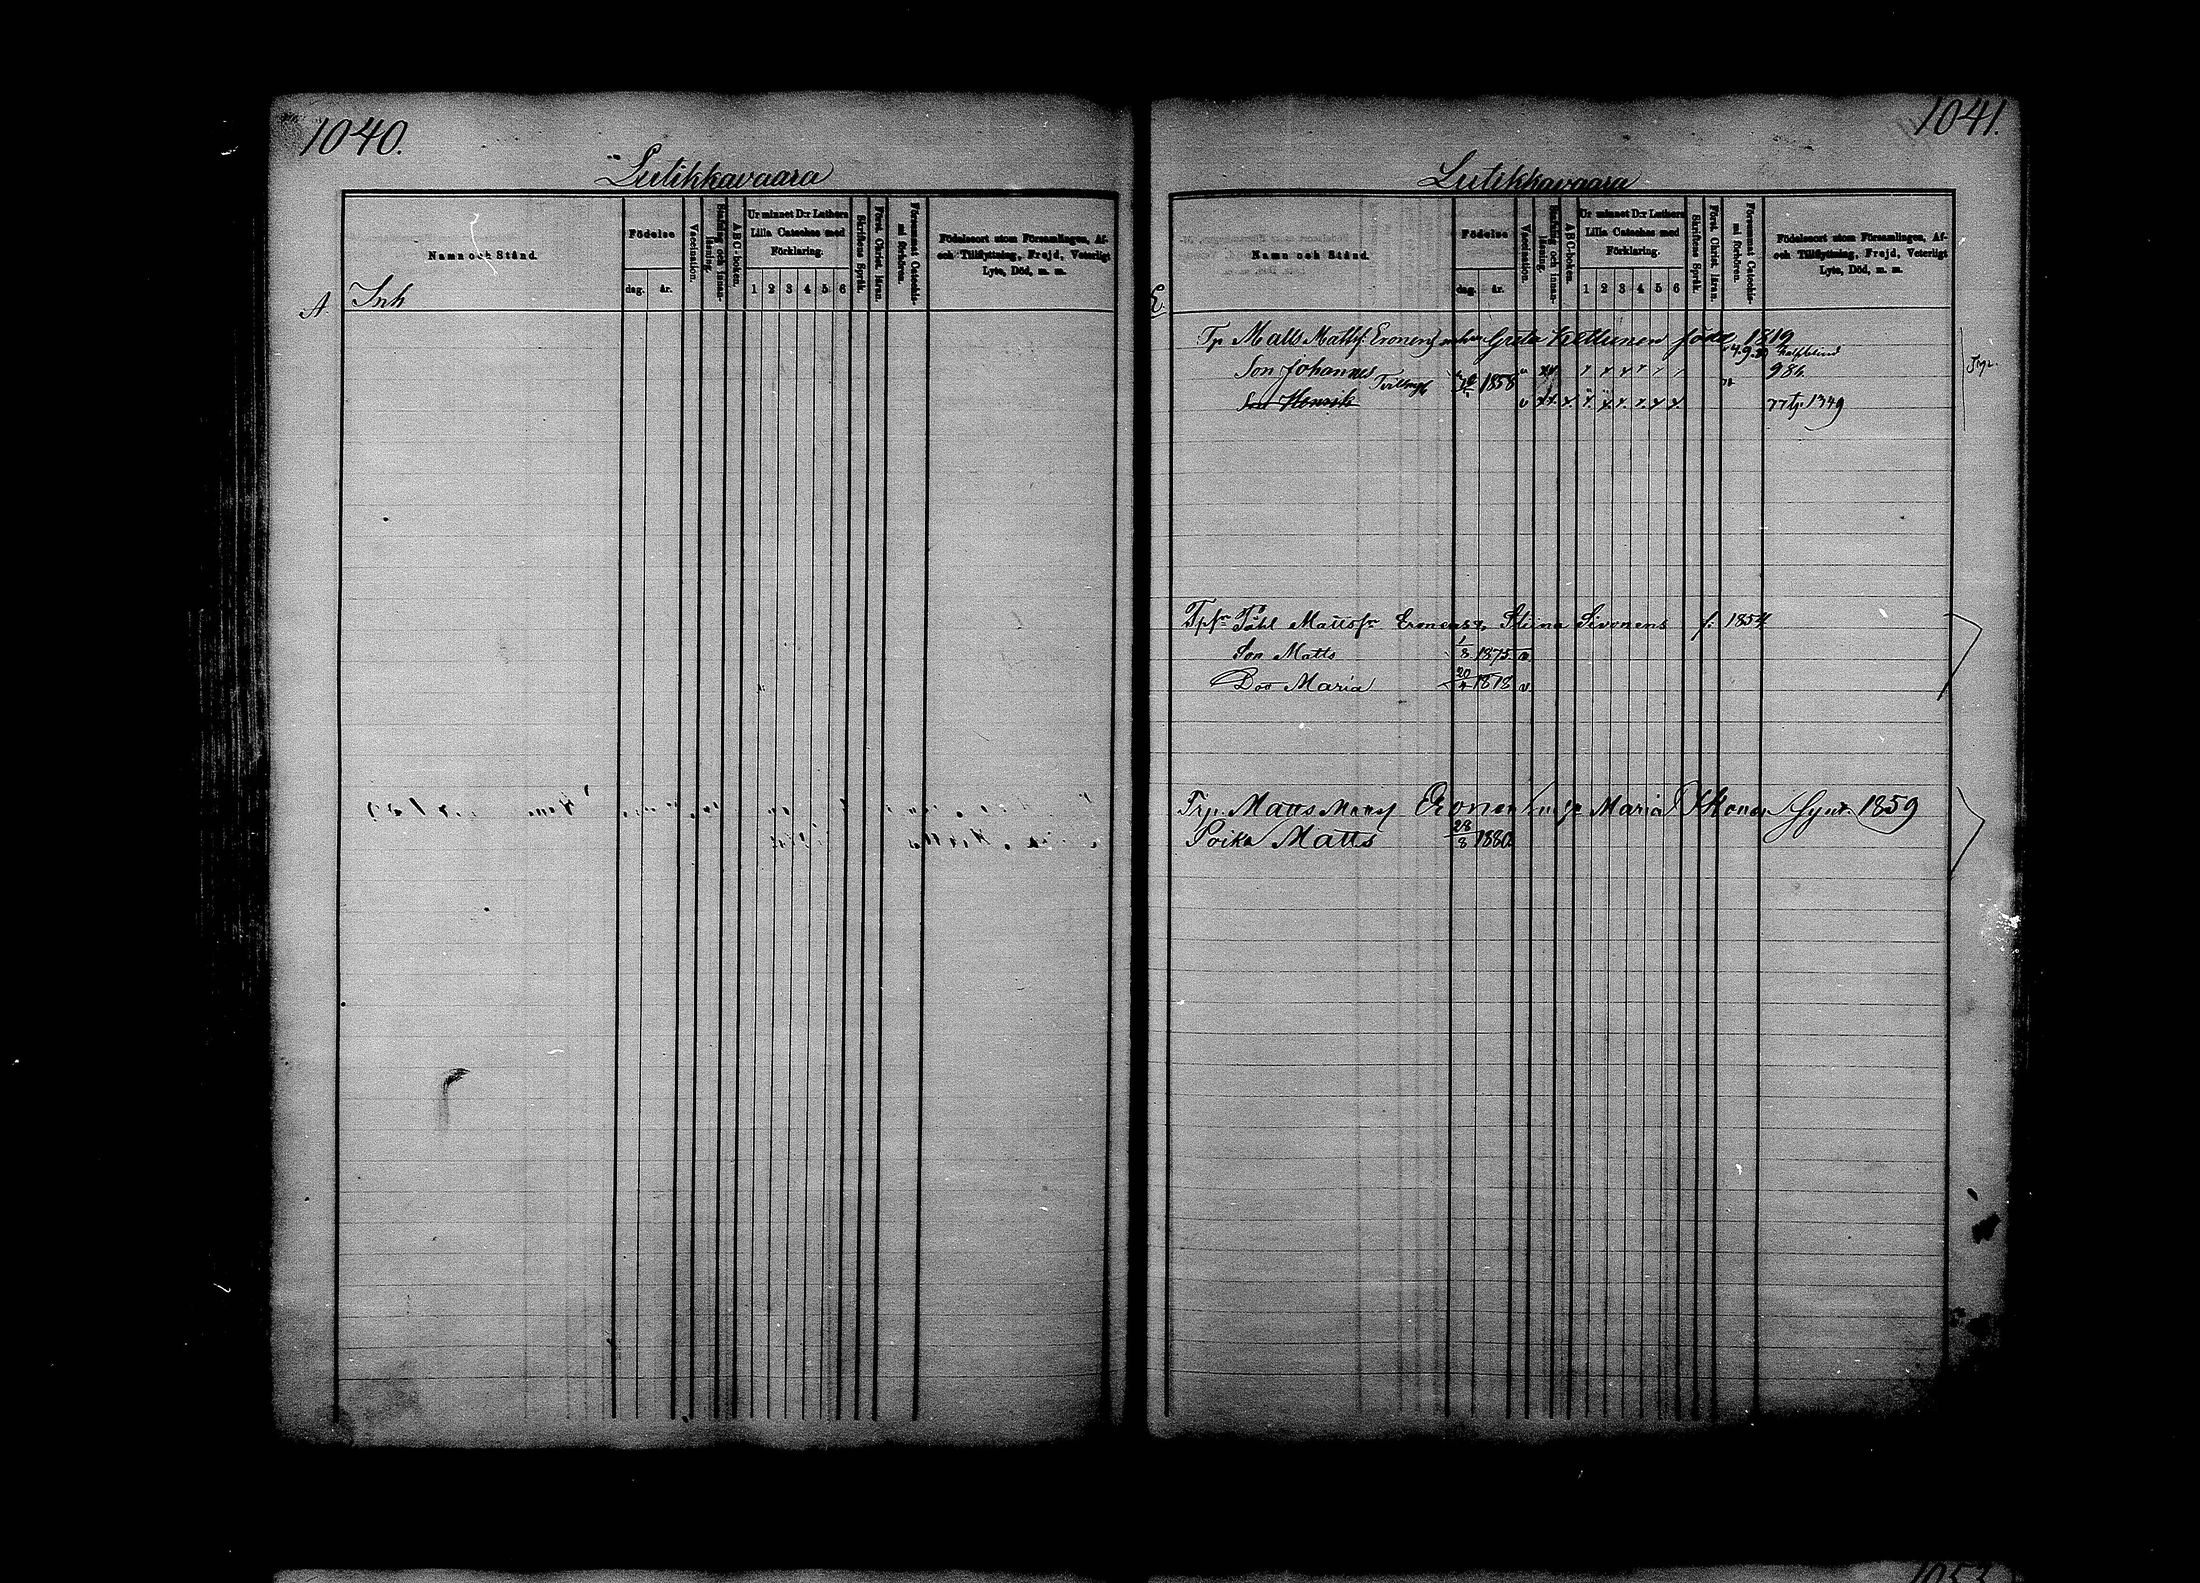 1040.
Lutikkavaara
Namn och Stånd.
Födelse
dag. år.
Vaccination.
Stafning och innan-läsning.
ABC-boken.
Ur minnet D:r Luthers
Lilla Cateches med
Förklaring.
1 2 3 4 5 6
Skriftens Språk.
Först. Christ. läran.
Försummat Catechis-mi förhören.
Födelseort utom Församlingen, Af-
och Tillflyttning, Frejd, Veterligt
Lyte, Död, m. m.
A. Inh
1041.
Lutikkavaara
Namn och Stånd.
Födelse
dag. år.
Vaccination.
Stafning och innan-läsning.
ABC-boken.
Ur minnet D:r Luthers
Lilla Cateches med
Förklaring.
1 2 3 4 5 6
Skriftens Språk.
Först. Christ. läran.
Försummat Catechis-mi förhören.
Födelseort utom Församlingen, Af-
och Tillflyttning, Frejd, Veterligt
Lyte, Död, m. m.
Tp Matts Mattss. Eronens enka Greta Kettunen född 1819
halfblind
Son Johannes 1858 984
Son Henrik 1349
Påhl Mattss:n Eronens Stina Sivonens f. 1854
Son Matts 1/8 1875 v.
Do:r Maria 20/4 1878 v.
Trp. Matts Eronen Maria Ikonen synt. 1859
Poika Matts 28/8 1880
1053